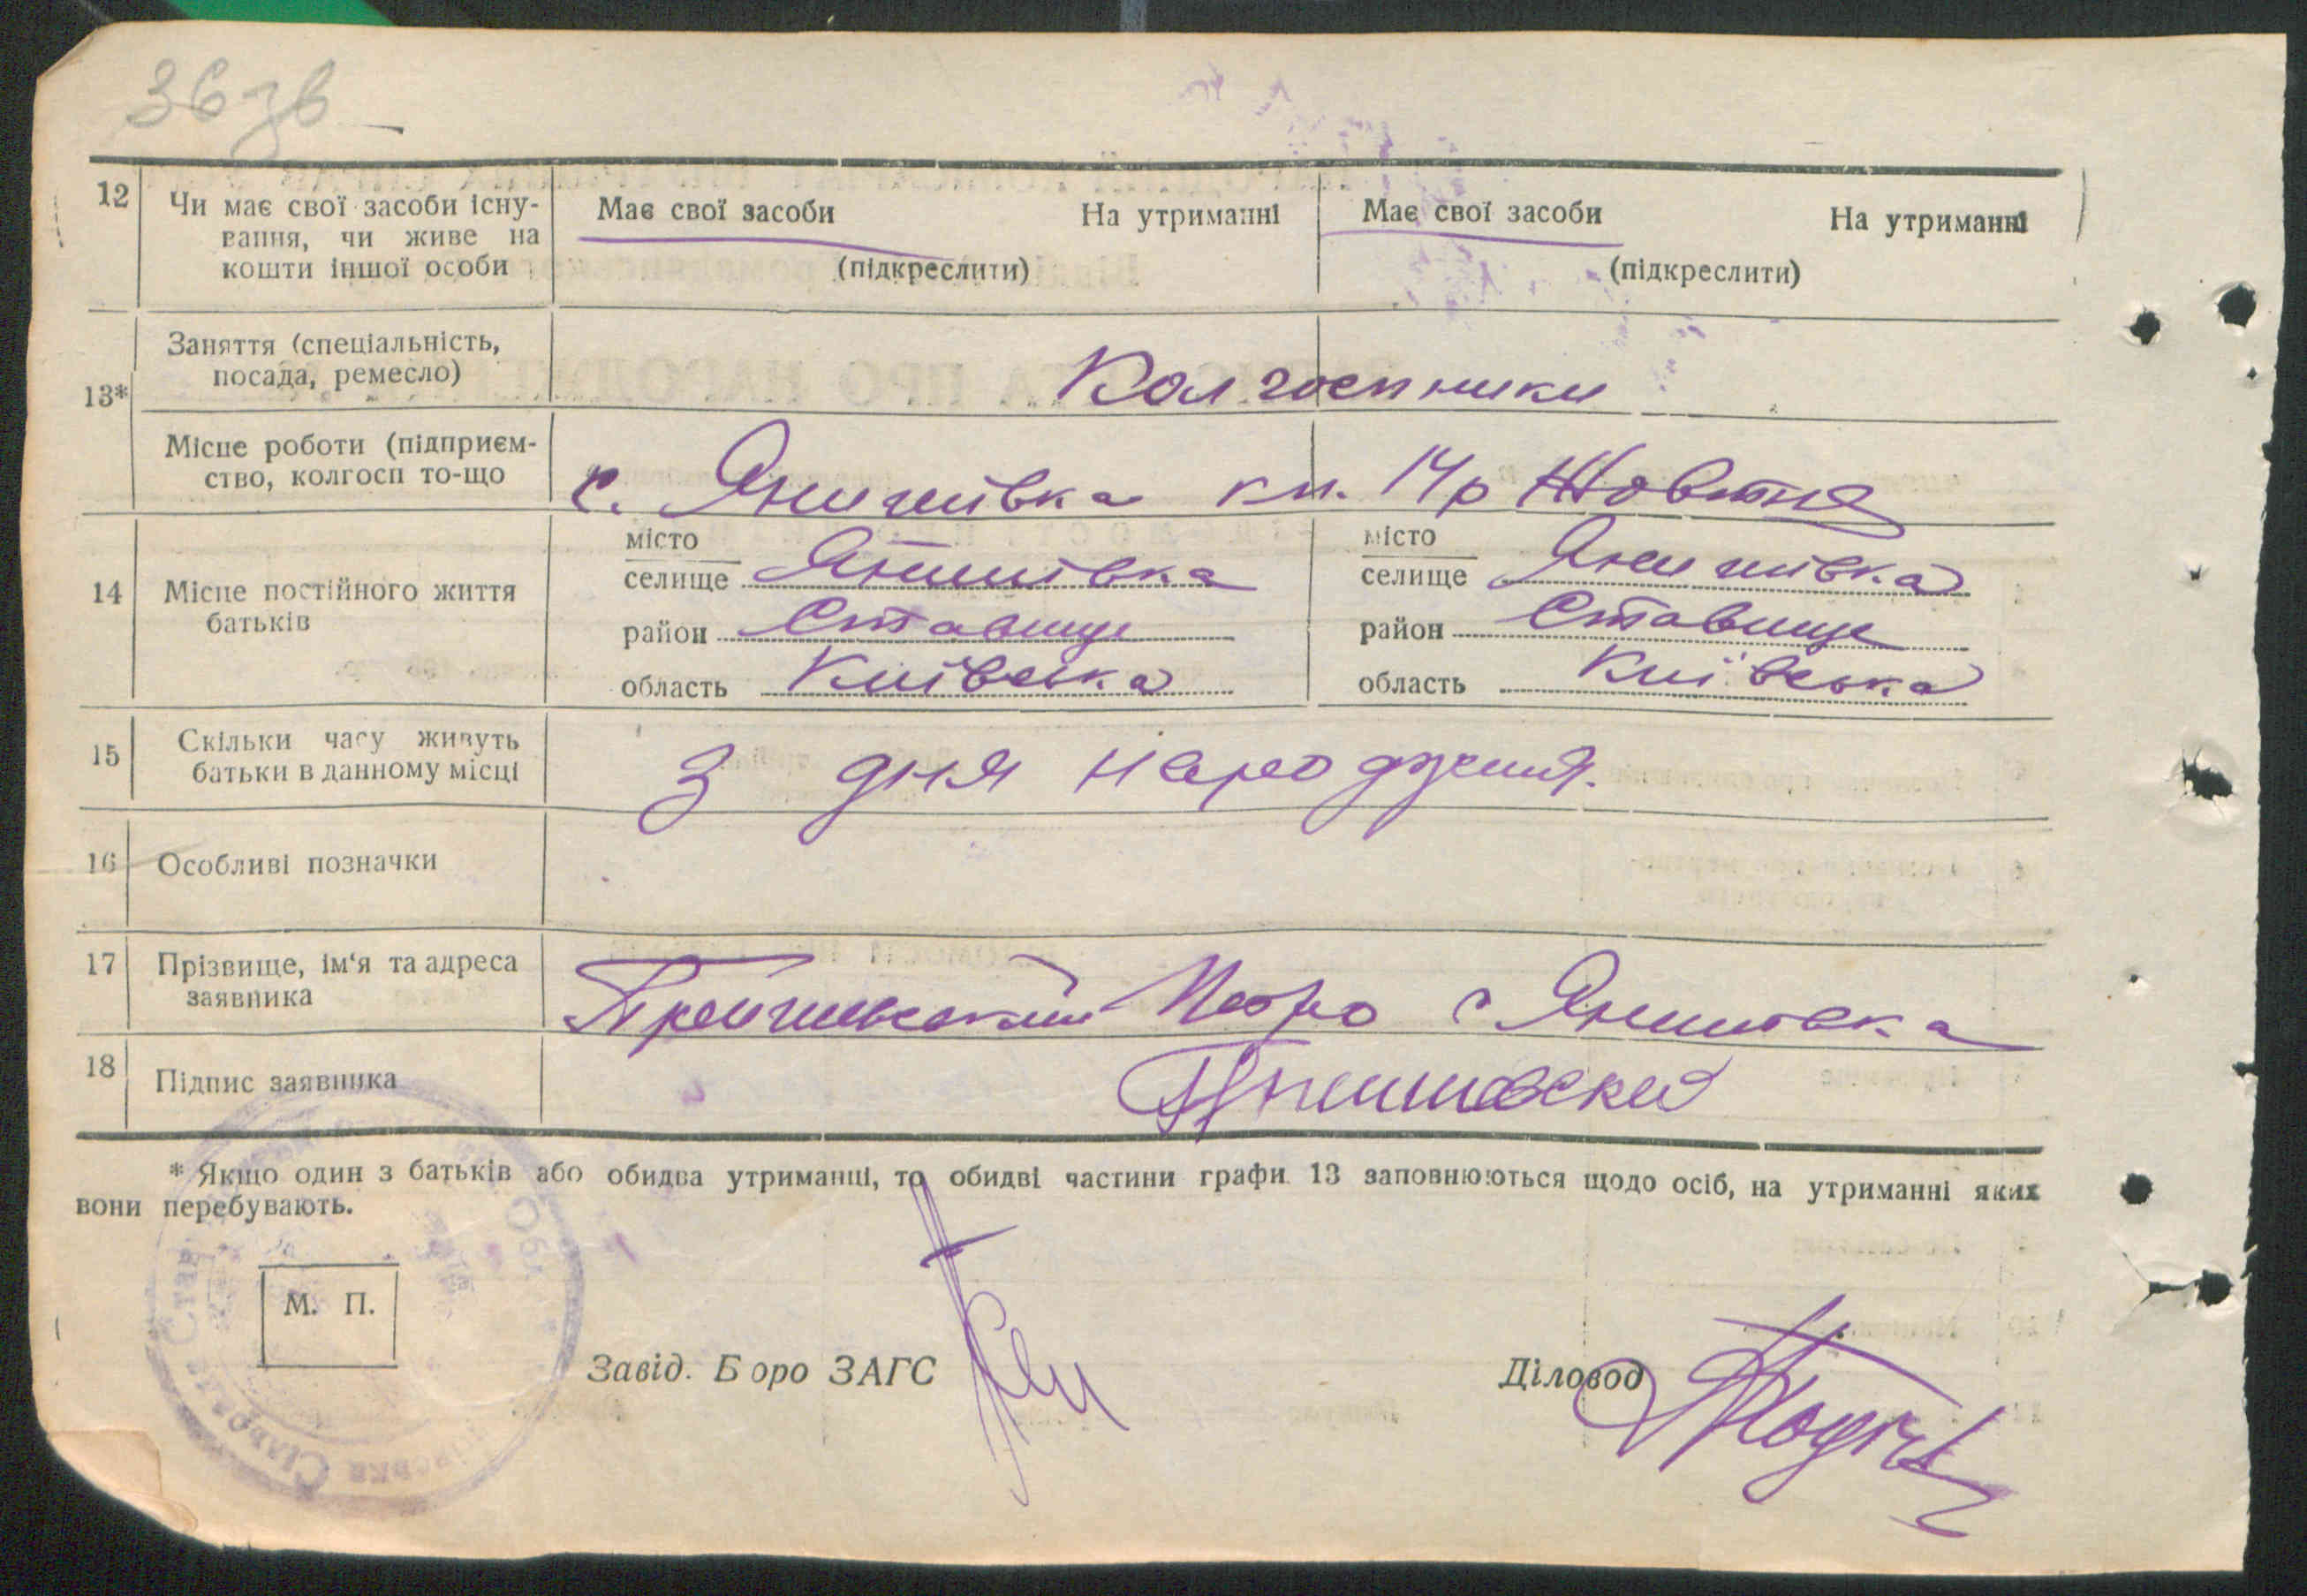 36 зв
12 Чи має свої засоби існу- Має свої засоби На утриманні Має свої засоби На утриманні
вання, чи живе на
кошти іншої особи (підкреслити) (підкреслити)
Заняття (спеціальність,
посада, ремесло) Колгоспники
13*
Місце роботи (підприєм-
ство, колгосп то-що с. Янишівка кл. 14 р Жовтня
місто місто
14 Місце постійного життя селище Янишівка селище Янишівка
батьків район Ставище район Ставище
область Київська область Київська
15 Скільки часу живуть
батьки в данному місці З дня народження.
16 Особливі позначки
17 Прізвище, ім'я та адреса
заявника Петро с Янишовка
18 Підпис заявника
* Якщо один з батьків або обидва утриманці, то обидві частини графи 13 заповнюються щодо осіб, на утриманні яких
вони перебувають.
М. П.
Завід. Бюро ЗАГС Діловод